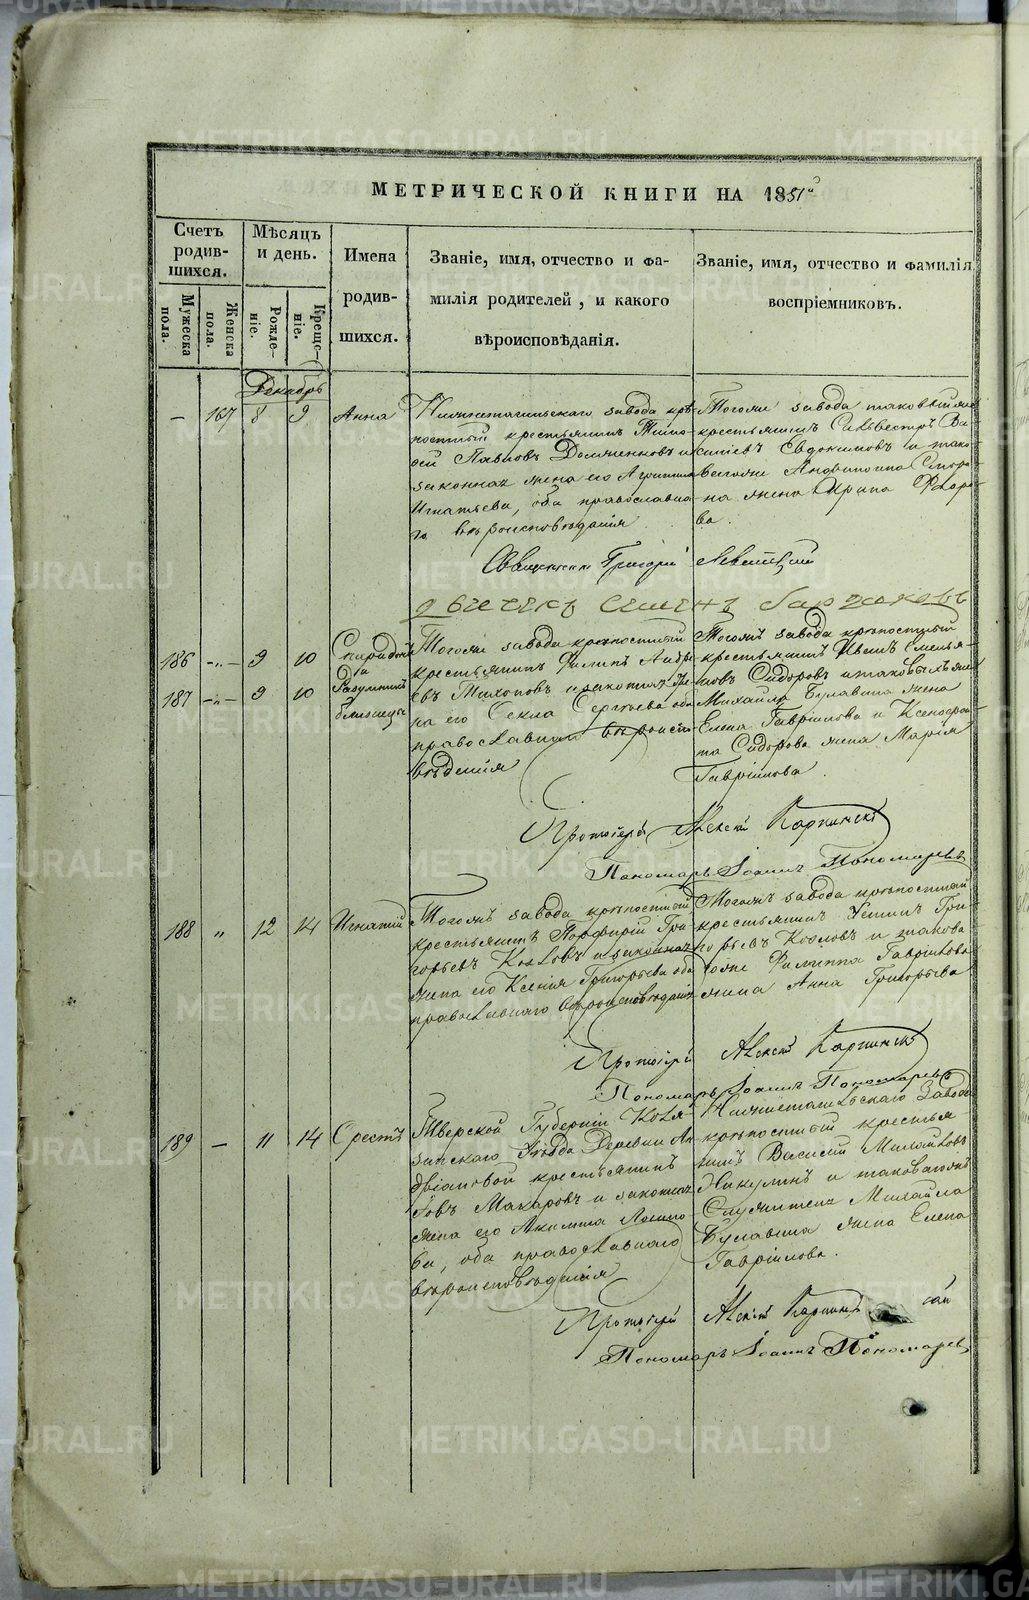 МЕТРИЧЕСКОЙ КНИГИ НА 1851й
Счетъ родив-шихся.
Мужеска пола.
Женска пола.
Мѣсяцъ и день.
Рожде-ніе.
Креще-ніе.
Имена родив-шихся.
Званіе, имя, отчество и фа-
милія родителей, и какого
вѣроисповѣданія.
Званіе, имя, отчество и фамилія
воспріемниковъ.
Декабрь
— 167 8 9 Анна
Нижнетагильскаго завода крѣ-
постный крестьянинъ Тимо-
фей Павловъ и
законная жена его Агрипина
Игнатьева, оба православна-
го вѣроисповѣданія
Тогоже завода таковыйже
крестьянинъ Сильвестръ Ва-
силіевъ Евдокимовъ и тако-
вагоже
на жена Ирина Федоро-
ва.
Священникъ Григорій Левитскій
186 —„— 9 10 Спиридонъ
и
187 —„— 9 10
близнецы
Тогоже завода крѣпостный
крестьянинъ Филипъ Андре-
евъ Тихоновъ и законная же-
на его Фекла Сергѣева оба
православнаго вѣроиспо-
вѣденія
Тогожъ завода крѣпостный
крестьянинъ Иванъ Емелья-
новъ Сидоровъ и таковыхъ же
Михайла Булавина жена
Елена Гавріилова и Ксенофон-
та Сидорова жена Марія
Гавріилова.
Протоіерей Алексѣй Карпинскій
Пономарь Іоаннъ Пономаревъ
188 „ 12 14 Игнатій
Тогожъ завода крѣпостный
крестьянинъ Порфирій Гри-
горьевъ Козловъ и законная
жена его Ксенія Григорьева оба
православнаго вѣроисповѣданія
Тогожъ завода крѣпостный
крестьянинъ Устинъ Гри-
горьевъ Козловъ и такова-
гоже Филиппа Гаврилова
жена Анна Григорьева
Протоіерей Алексѣй Карпинскій
Пономарь Іоаннъ Пономаревъ
189 — 11 14 Орестъ
Тверской Губерніи Коля-
зинскаго Уѣзда Деревни Ан-
дріановой крестьянинъ
Іовъ Макаровъ и законная
жена его Акилина
ва, оба православнаго
вѣроисповѣданія
Нижнетагильскаго Завода
крѣпостный крестья-
нинъ Василій Михайловъ
Никулинъ и таковагожъ
Служителя Михайла
Булавина жена Елена
Гавріилова.
Протоіерей Алексѣй Карпинскій
Пономарь Іоаннъ Пономаревъ
METRIKI.GASO-URAL.RU